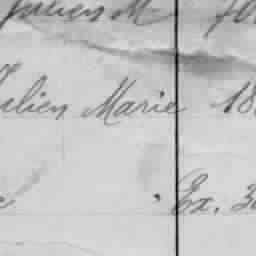 Julien M
Julien Marie 18
Ex. 3